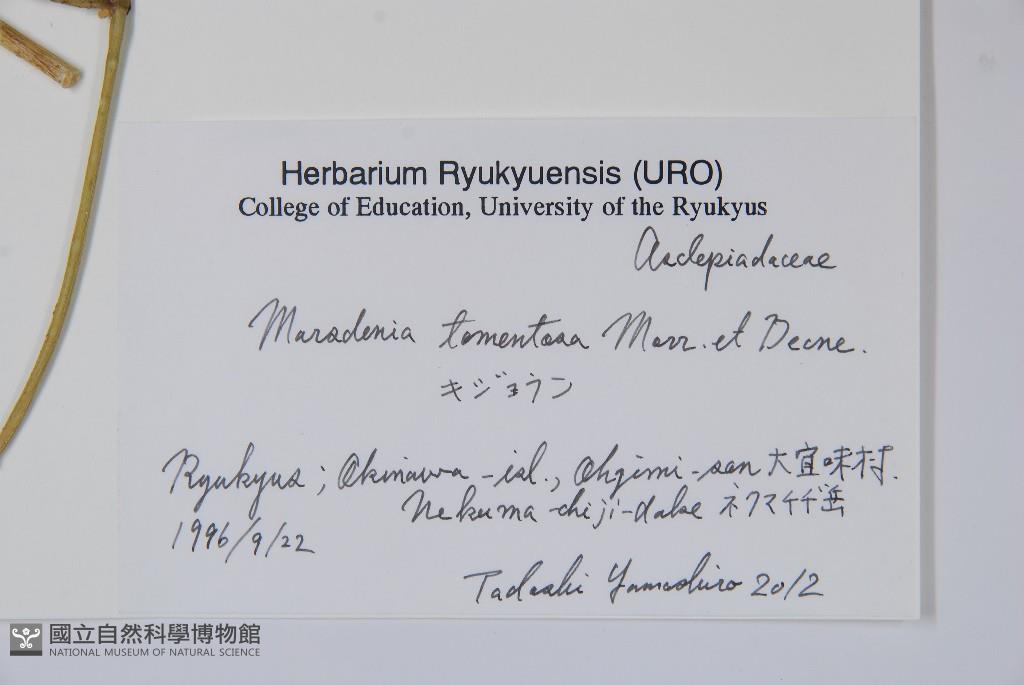 Herbarium Ryukyuensis (URO)
College of Education, University of the Ryukyus
Asclepiadaceae
Marsdenia tomentosa Morr. et Decne.
キジョラン
Ryukyus; Okinawa-isl., Ohgimi-son 大宜味村.
Nekuma-chiji-dake ネクマチヂ岳
1996/9/22
Tadashi Yamashiro 2012
國立自然科學博物館
NATIONAL MUSEUM OF NATURAL SCIENCE